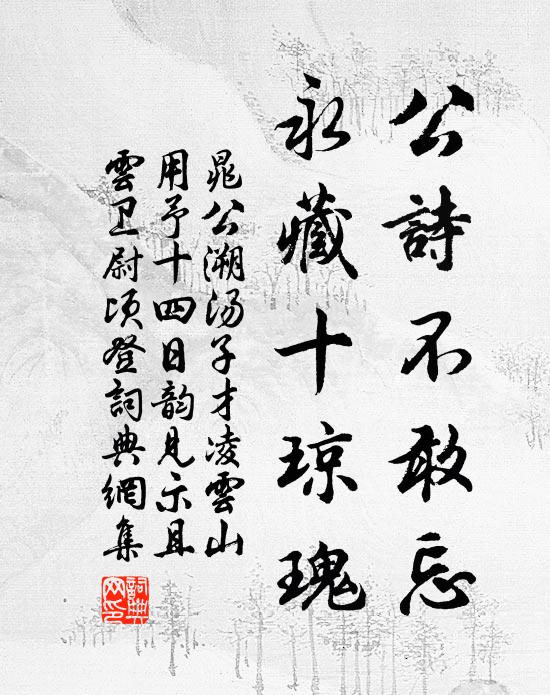 公詩不敢忘
永藏十琼瑰
晁公溯汤子才凌雲山
用予十四日韵见示且
雲卫尉顷登詞典網集
詞典网印